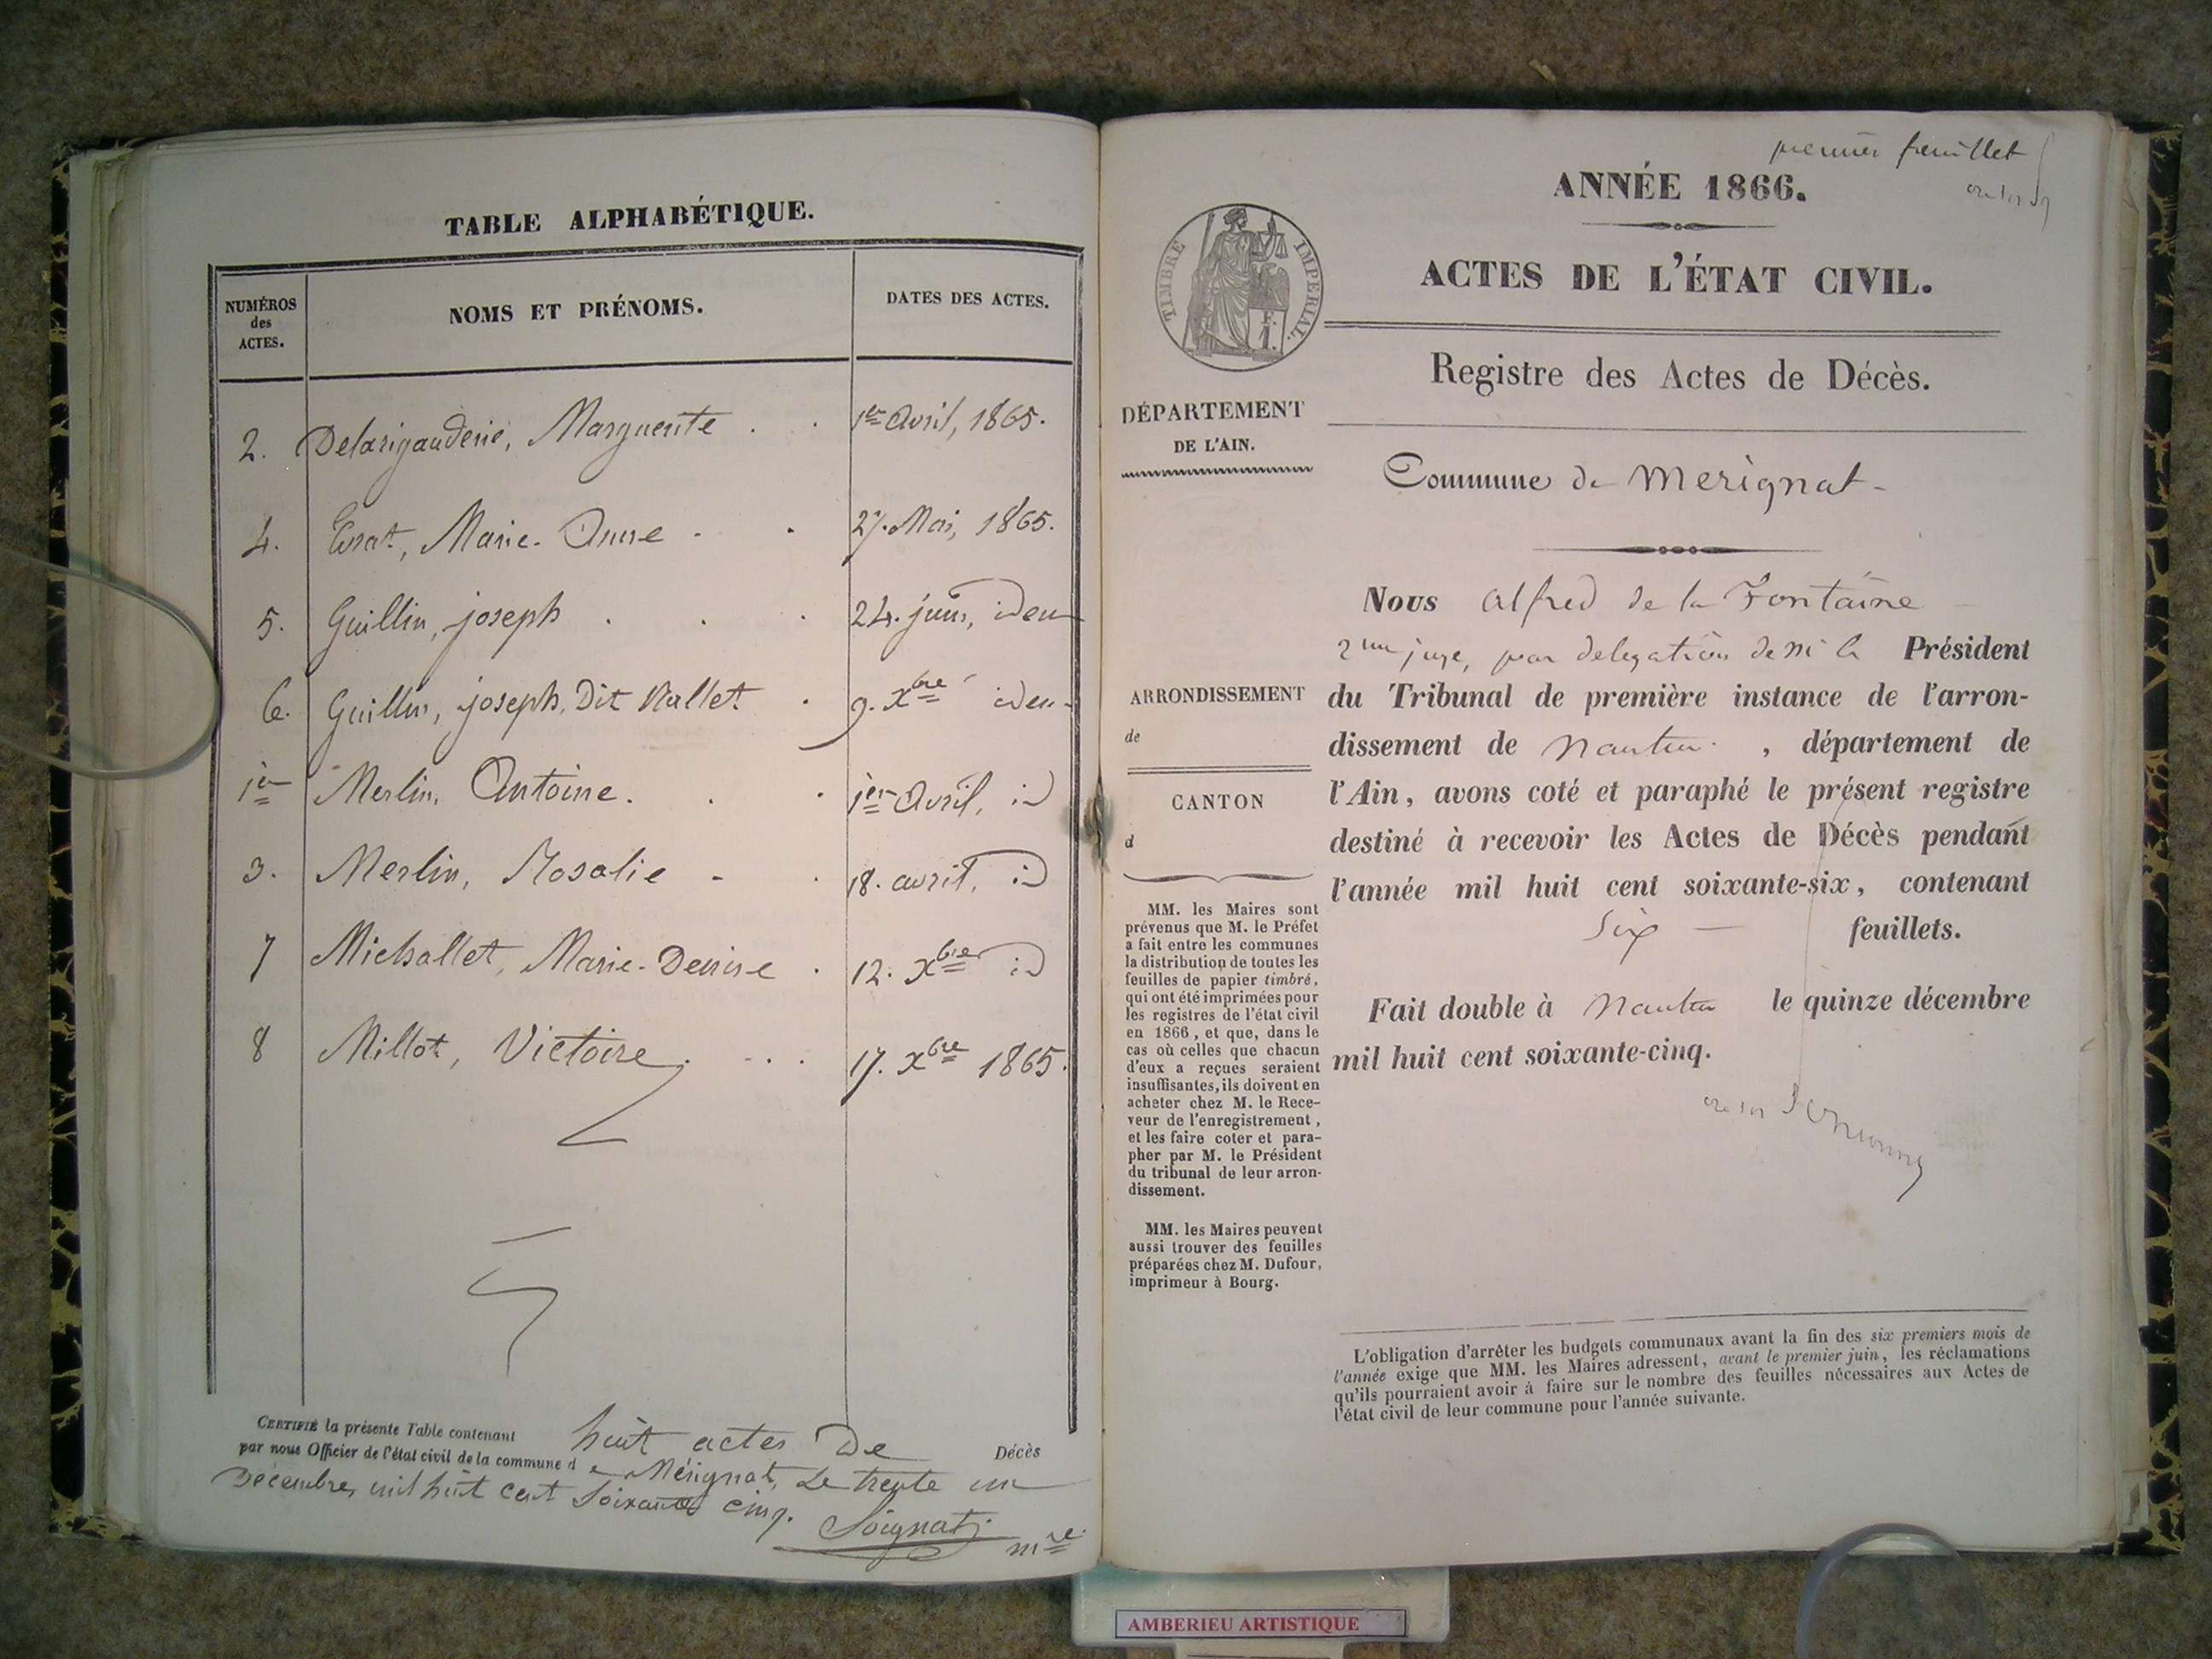 TABLE ALPHABÉTIQUE.
NUMÉROS
des
ACTES.
NOMS ET PRÉNOMS.
DATES DES ACTES.
2. Delarigauderie, Marguerite . . 1er Avril, 1865.
4. Evrat, Marie-Anne - . 27. Mai, 1865.
5. Guillin, joseph . . . 24. juin, idem
6. Guillin, joseph, Dit Mallet . 9. Xbre idem
1er Merlin, Antoine. . . 1er Avril, id
3. Merlin, Rosalie - . 18. avril, id
7 Michallet, Marie-Denise . 12. Xbre id
8 Millot, Victoire. . . . 17. Xbre 1865.
CERTIFIÉ la présente Table contenant huit actes de Décès
par nous Officier de l'état civil de la commune de Mérignat, Le trente un
Décembre, mil huit cent soixante cinq.
Soignat
mre
premier feuillet
ANNÉE 1866.
TIMBRE IMPERIAL.
1 F.
ACTES DE L'ÉTAT CIVIL.
Registre des Actes de Décès.
DÉPARTEMENT
DE L'AIN.
Commune de Merignat-
ARRONDISSEMENT
de
CANTON
d
MM. les Maires sont
prévenus que M. le Préfet
a fait entre les communes
la distribution de toutes les
feuilles de papier timbré,
qui ont été imprimées pour
les registres de l'état civil
en 1866, et que, dans le
cas où celles que chacun
d'eux a reçues seraient
insuffisantes, ils doivent en
acheter chez M. le Rece-
veur de l'enregistrement,
et les faire coter et para-
pher par M. le Président
du tribunal de leur arron-
dissement.
MM. les Maires peuvent
aussi trouver des feuilles
préparées chez M. Dufour,
imprimeur à Bourg.
Nous Alfred de la Fontaine
juge, par delegation de M le Président
du Tribunal de première instance de l'arron-
dissement de Nantua , département de
l'Ain, avons coté et paraphé le présent registre
destiné à recevoir les Actes de Décès pendant
l'année mil huit cent soixante-six, contenant
six - feuillets.
Fait double à Nantua le quinze décembre
mil huit cent soixante-cinq.
L'obligation d'arrêter les budgets communaux avant la fin des six premiers mois de
l'année exige que MM. les Maires adressent, avant le premier juin, les réclamations
qu'ils pourraient avoir à faire sur le nombre des feuilles nécessaires aux Actes de
l'état civil de leur commune pour l'année suivante.
AMBERIEU ARTISTIQUE